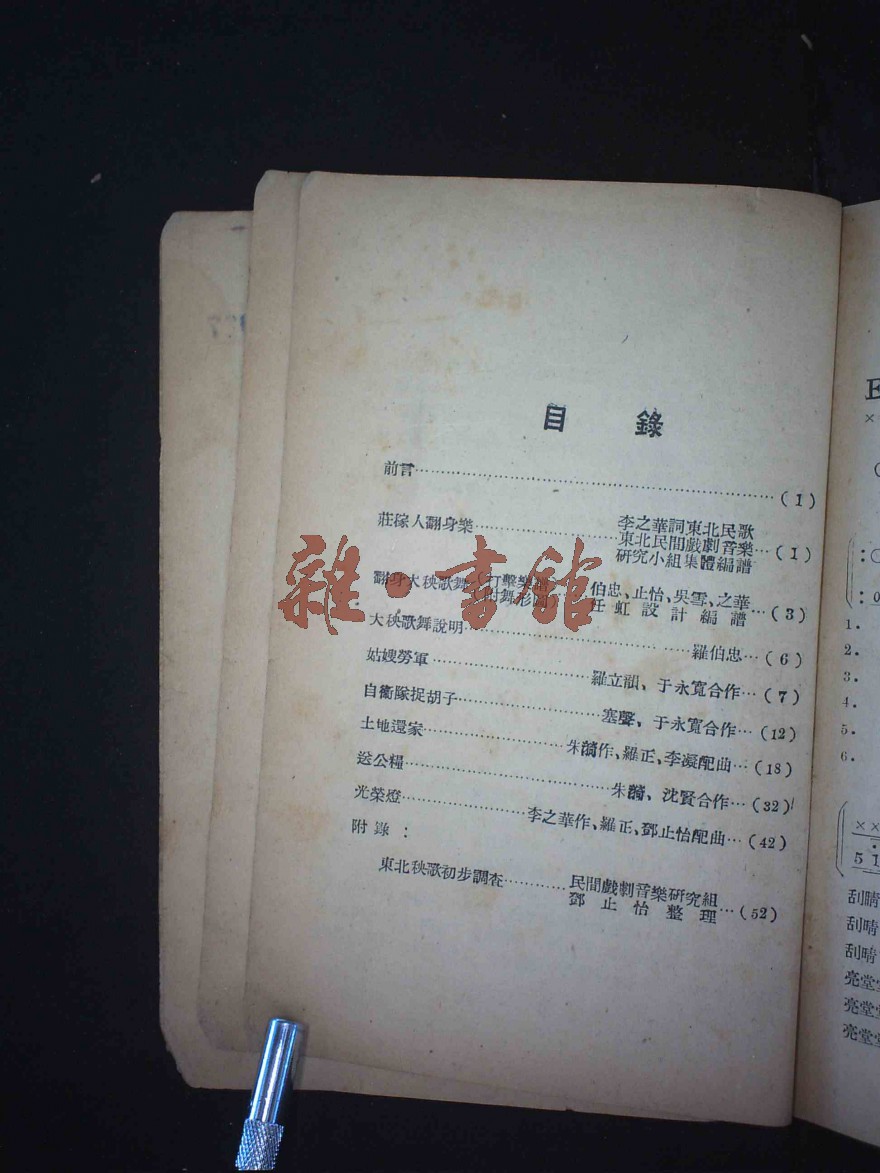 目錄
前言……(1)
莊稼人翻身樂……李之華詞東北民歌
東北民間戲劇音樂…(1)
研究小組集體編譜
翻身大秧歌舞(打擊樂譜
附舞形圖)……伯忠、止怡、吳雪、之華
任虹設計編譜…(3)
大秧歌舞說明……羅伯忠…(6)
姑嫂勞軍……羅立韻、于永寬合作…(7)
自衞隊捉胡子……塞聲、于永寬合作…(12)
土地還家……朱漪作、羅正、李凝配曲…(18)
送公糧……朱漪、沈賢合作…(32)
光榮燈……李之華作、羅正、鄧止怡配曲…(42)
附錄：
東北秧歌初步調查……民間戲劇音樂研究組
鄧止怡整理…(52)
雜·書館
1.
2.
3.
4.
5.
6.
××
5 1
刮晴
刮晴
刮晴
亮堂
亮堂
亮堂